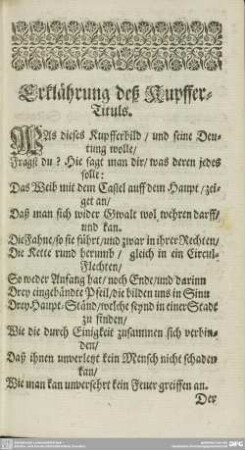 Erklährung deß Kupffer-
Tituls.
WAs dieses Kupfferbild / und seine Deu-
tung wolle /
Fragst du ? Hie sagt man dir / was deren jedes
solle :
Das Weib mit dem Castel auff dem Haupt / zei-
get an /
Daß man sich wider Gwalt wol wehren darff /
und kan.
Die Fahne / so sie führt / und zwar in ihrer Rechten /
Die Kette rund herumb / gleich in ein Circul-
Flechten /
So weder Anfang hat / noch Ende / und darinn
Drey eingebändte Pfeil / die bilden uns in Sinn
Drey Haupt-Ständ / welche seynd in einer Stadt
zu finden /
Wie die durch Einigkeit zusammen sich verbin-
den /
Daß ihnen unverletzt kein Mensch nicht schaden
kan /
Wie man kan unversehrt kein Feuer greiffen an.
Der